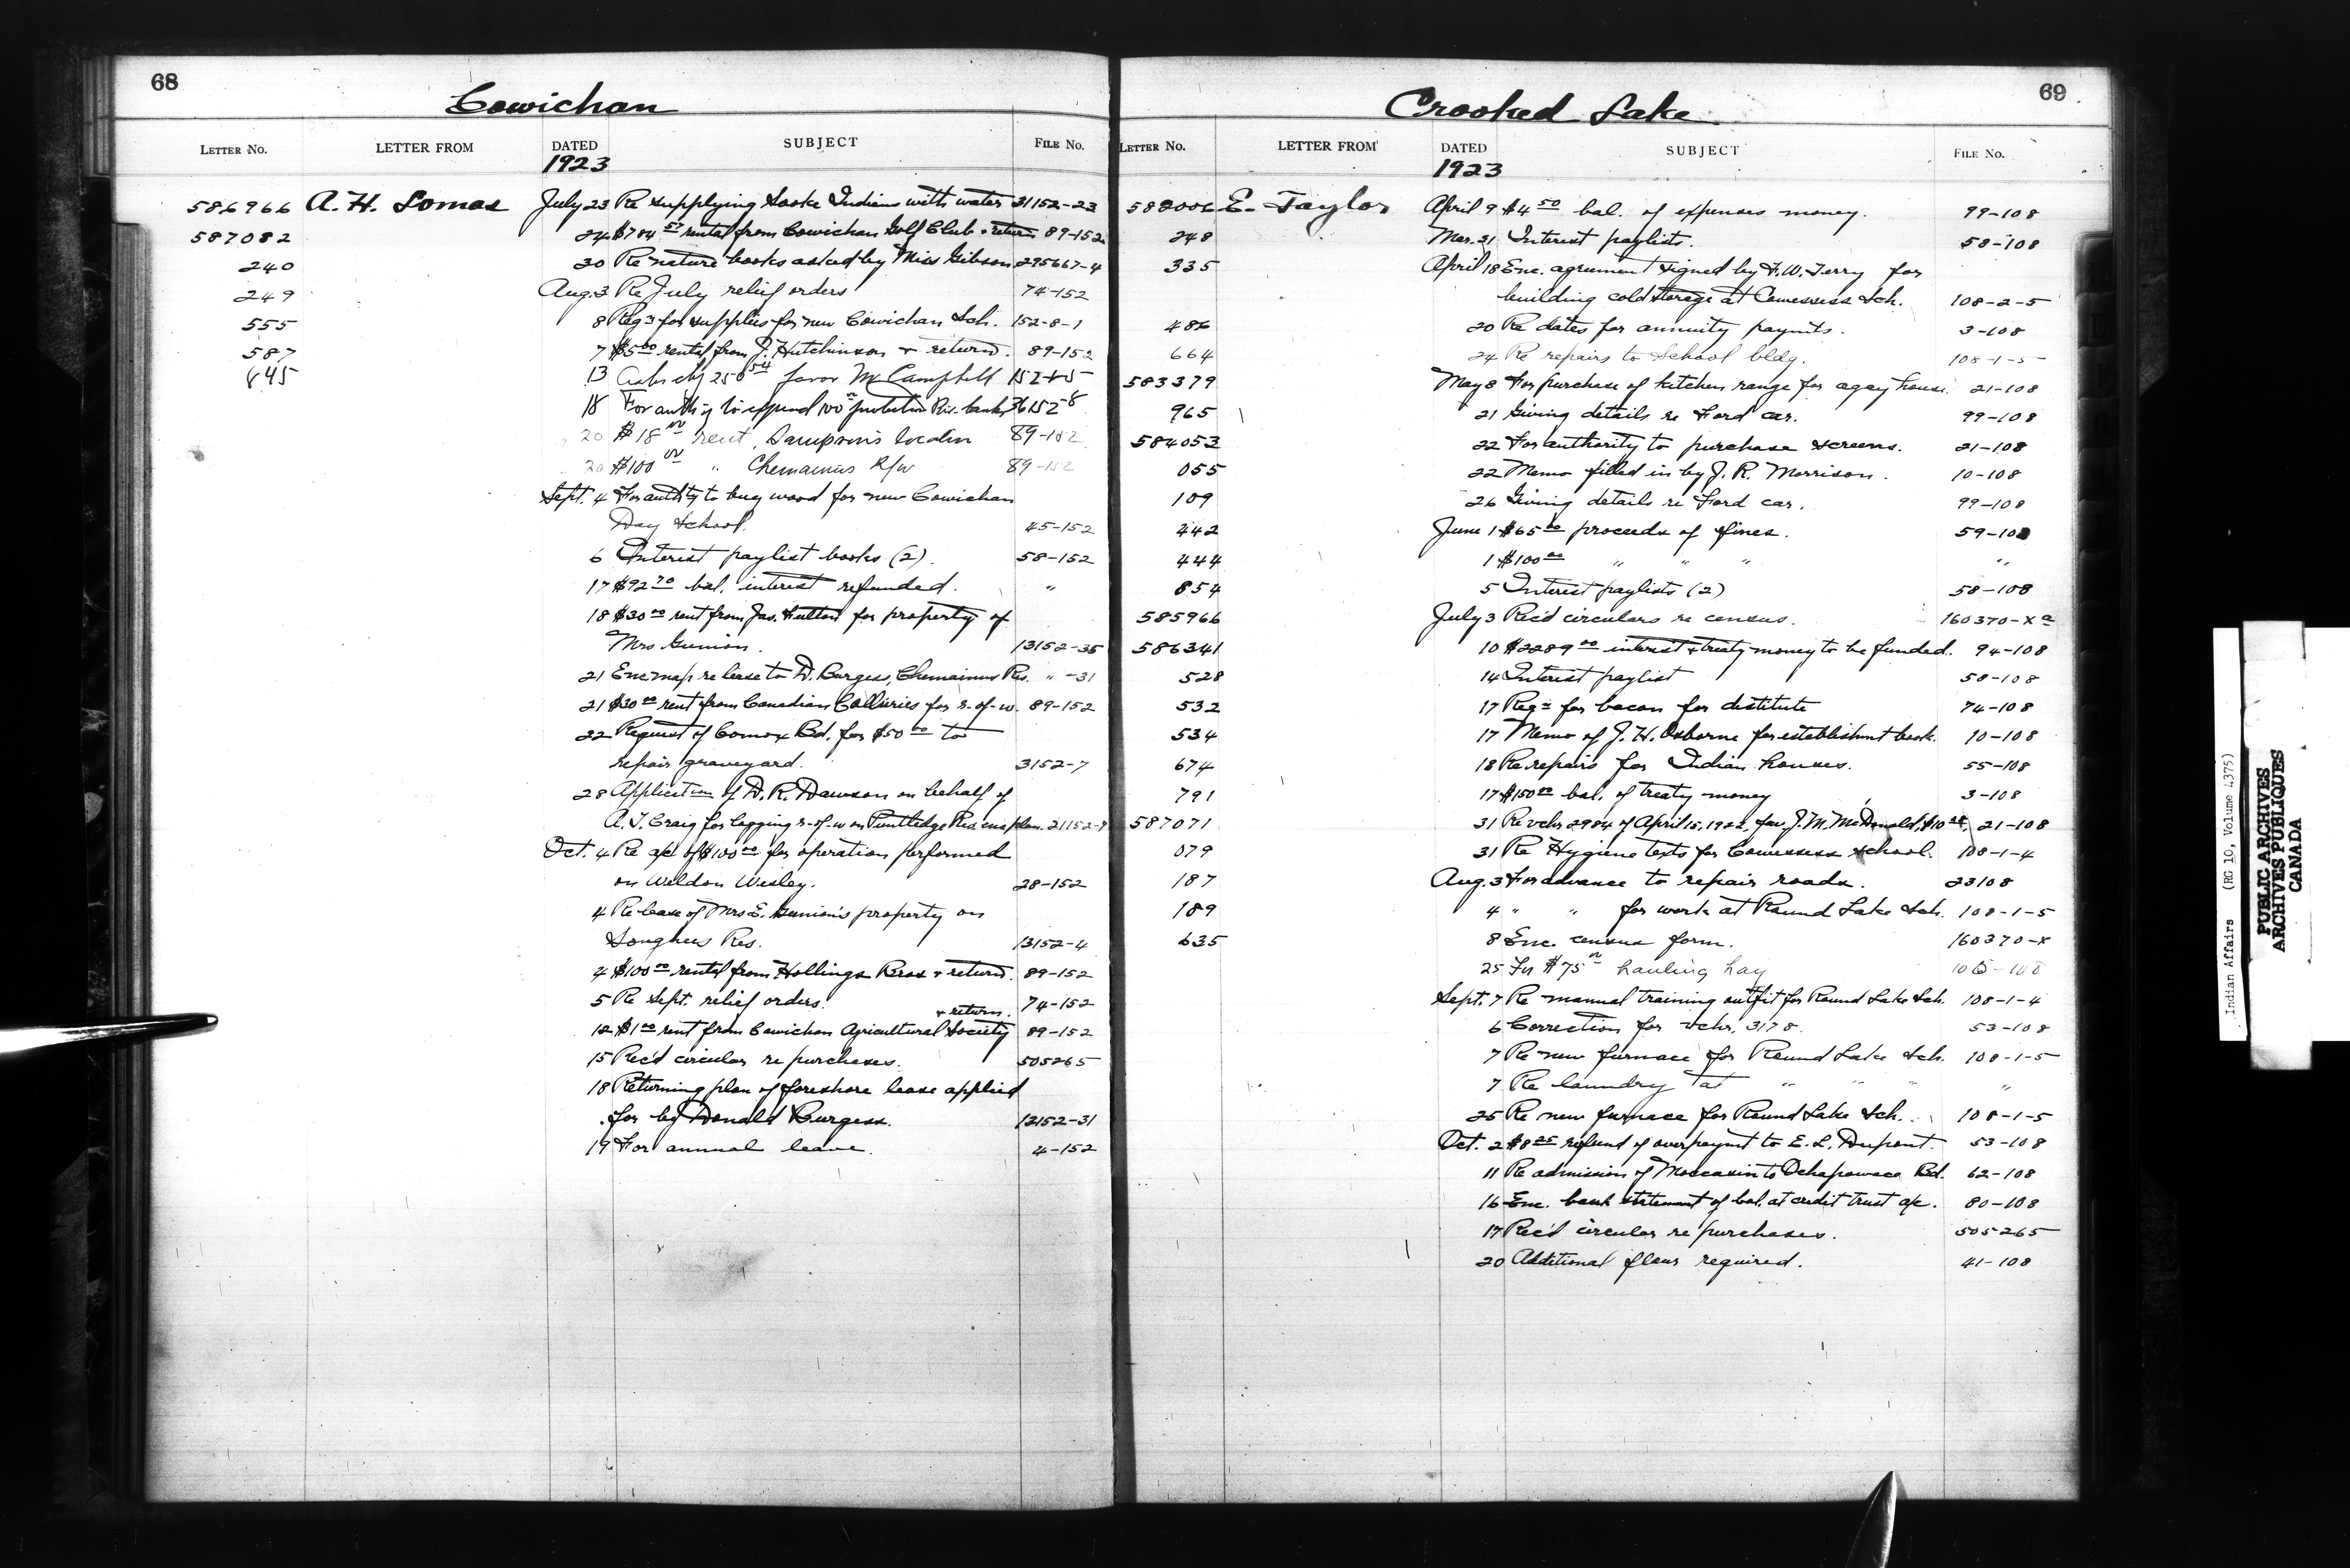 68
Cowichan
LETTER NO. LETTER FROM DATED SUBJECT FILE NO.
1923
586966 A. H. Lomas July 23 Re supplying Sooke Indians with water 31152-23
587082 24 $784 57 rental from Cowichan Golf Club + return 89-152
240 30 Re nature books asked by Miss Gibson 295667-4
249 Aug. 3 Re July relief orders 74-152
555 8 Reqn for supplies for new Cowichan Sch. 152-8-1
587 7 $5 00 rental from J. Hutchinson + return. 89-152
645 13 250 54 favor McCampbell
18 For auth'y to expend 100 00 protection Riv. bank 36152-8
20 $18 00 rent, Sampson's location 89-152
20 $100 00 " Chemainus R/w 89-152
Sept. 4 For auth'ty to buy wood for new Cowichan
Day School. 45-152
6 Interest paylist books (2). 58-152
17 $92 70 bal. interest refunded. "
18 $30 00 rent from Jas. Hutton for property of
Mrs Gunion. 13152-35
21 Enc. map re lease to D. Burgess, Chemainus Res. " -31
21 $30 00 rent from Canadian Collieries for r.-of-w. 89-152
22 Request of Comox Bd. for $50 00 to
repair graveyard. 3152-7
28 Application of D. R. Dawson on behalf of
A. J. Craig for logging r-of-w on Puntledge Res. enc plan. 21152-7
Oct. 4 Re a/c of $100 00 for operation performed
on Weldon Wesley. 28-152
4 Re lease of Mrs E. Gunion's property on
Songhees Res. 13152-4
4 $100 00 rental from Hollings Bros + return. 89-152
5 Re Sept. relief orders. 74-152
+ return.
12 $1 00 rent from Cowichan Agricultural Society 89-152
15 Rec'd circular re purchases. 505265
18 Returning plan of foreshore lease applied
for by Donald Burgess. 13152-31
19 For annual leave. 4-152
69
Crooked Lake
LETTER NO. LETTER FROM DATED SUBJECT FILE NO.
1923
582006 E. Taylor April 9 $4 50 bal. of expenses money. 99-108
248 Mar. 31 Interest paylists. 58-108
335 April 18 Enc. agreement signed by F. W. Terry for
building cold storage at Cowesess Sch. 108-2-5
486 20 Re dates for annuity paym'ts. 3-108
664 24 Re repairs to School bldg. 108-1-5
583379 May 8 For purchase of kitchen range for agcy house. 21-108
965 21 Giving details re Ford car. 99-108
584053 22 For authority to purchase screens. 21-108
055 22 Memo filled in by J. R. Morrison. 10-108
109 26 Giving details re Ford car. 99-108
442 June 1 $65 00 proceeds of fines. 59-108
444 1 $100 00 " " " "
854 5 Interest paylists (2) 58-108
585966 July 3 Rec'd circulars re census. 160370-X a
586341 10 $2289 00 interest + treaty money to be funded. 94-108
528 14 Interest paylist 58-108
532 17 Reqn for bacon for destitute 74-108
534 17 Memo of J. H. Osborne for establishmt book. 10-108
674 18 Re repairs for Indian houses. 55-108
791 17 $150 00 bal. of treaty money 3-108
587071 31 Re vchr 2984 of April 15, 1922, fav. J. M. McDonald, $10 25, 21-108
079 31 Re Hygiene texts for Cowessess school. 108-1-4
187 Aug. 3 For advance to repair roads. 23108
189 4 " " for work at Round Lake Sch. 108-1-5
635 8 Enc. census form. 160370-X
25 For $75 00 hauling hay
Sept. 7 Re manual training outfit for Round Lake Sch. 108-1-4
6 Correction for vchr. 3178. 53-108
7 Re new furnace for Round Lake Sch. 108-1-5
7 Re laundry at " " " "
25 Re new furnace for Round Lake Sch. 108-1-5
Oct. 2 $8 25 refund of overpaymt to E. L. Dupont. 53-108
11 Re admission of Moccasin to Ochapowace Bd. 62-108
16 Enc. bank statement of bal. at credit trust a/c. 80-108
17 Rec'd circular re purchases. 505265
20 Additional flour required. 41-108
Indian Affairs (RG 10, Volume 4375)
PUBLIC ARCHIVES
ARCHIVES PUBLIQUES
CANADA